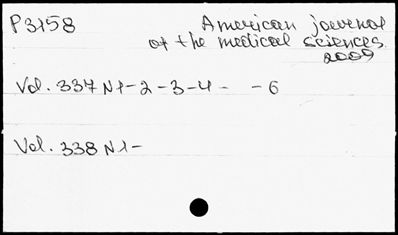 P3158 American journal
of the medical sciences
2009
Vol. 337 N1-2-3-4- -6
Vol. 338 N1-